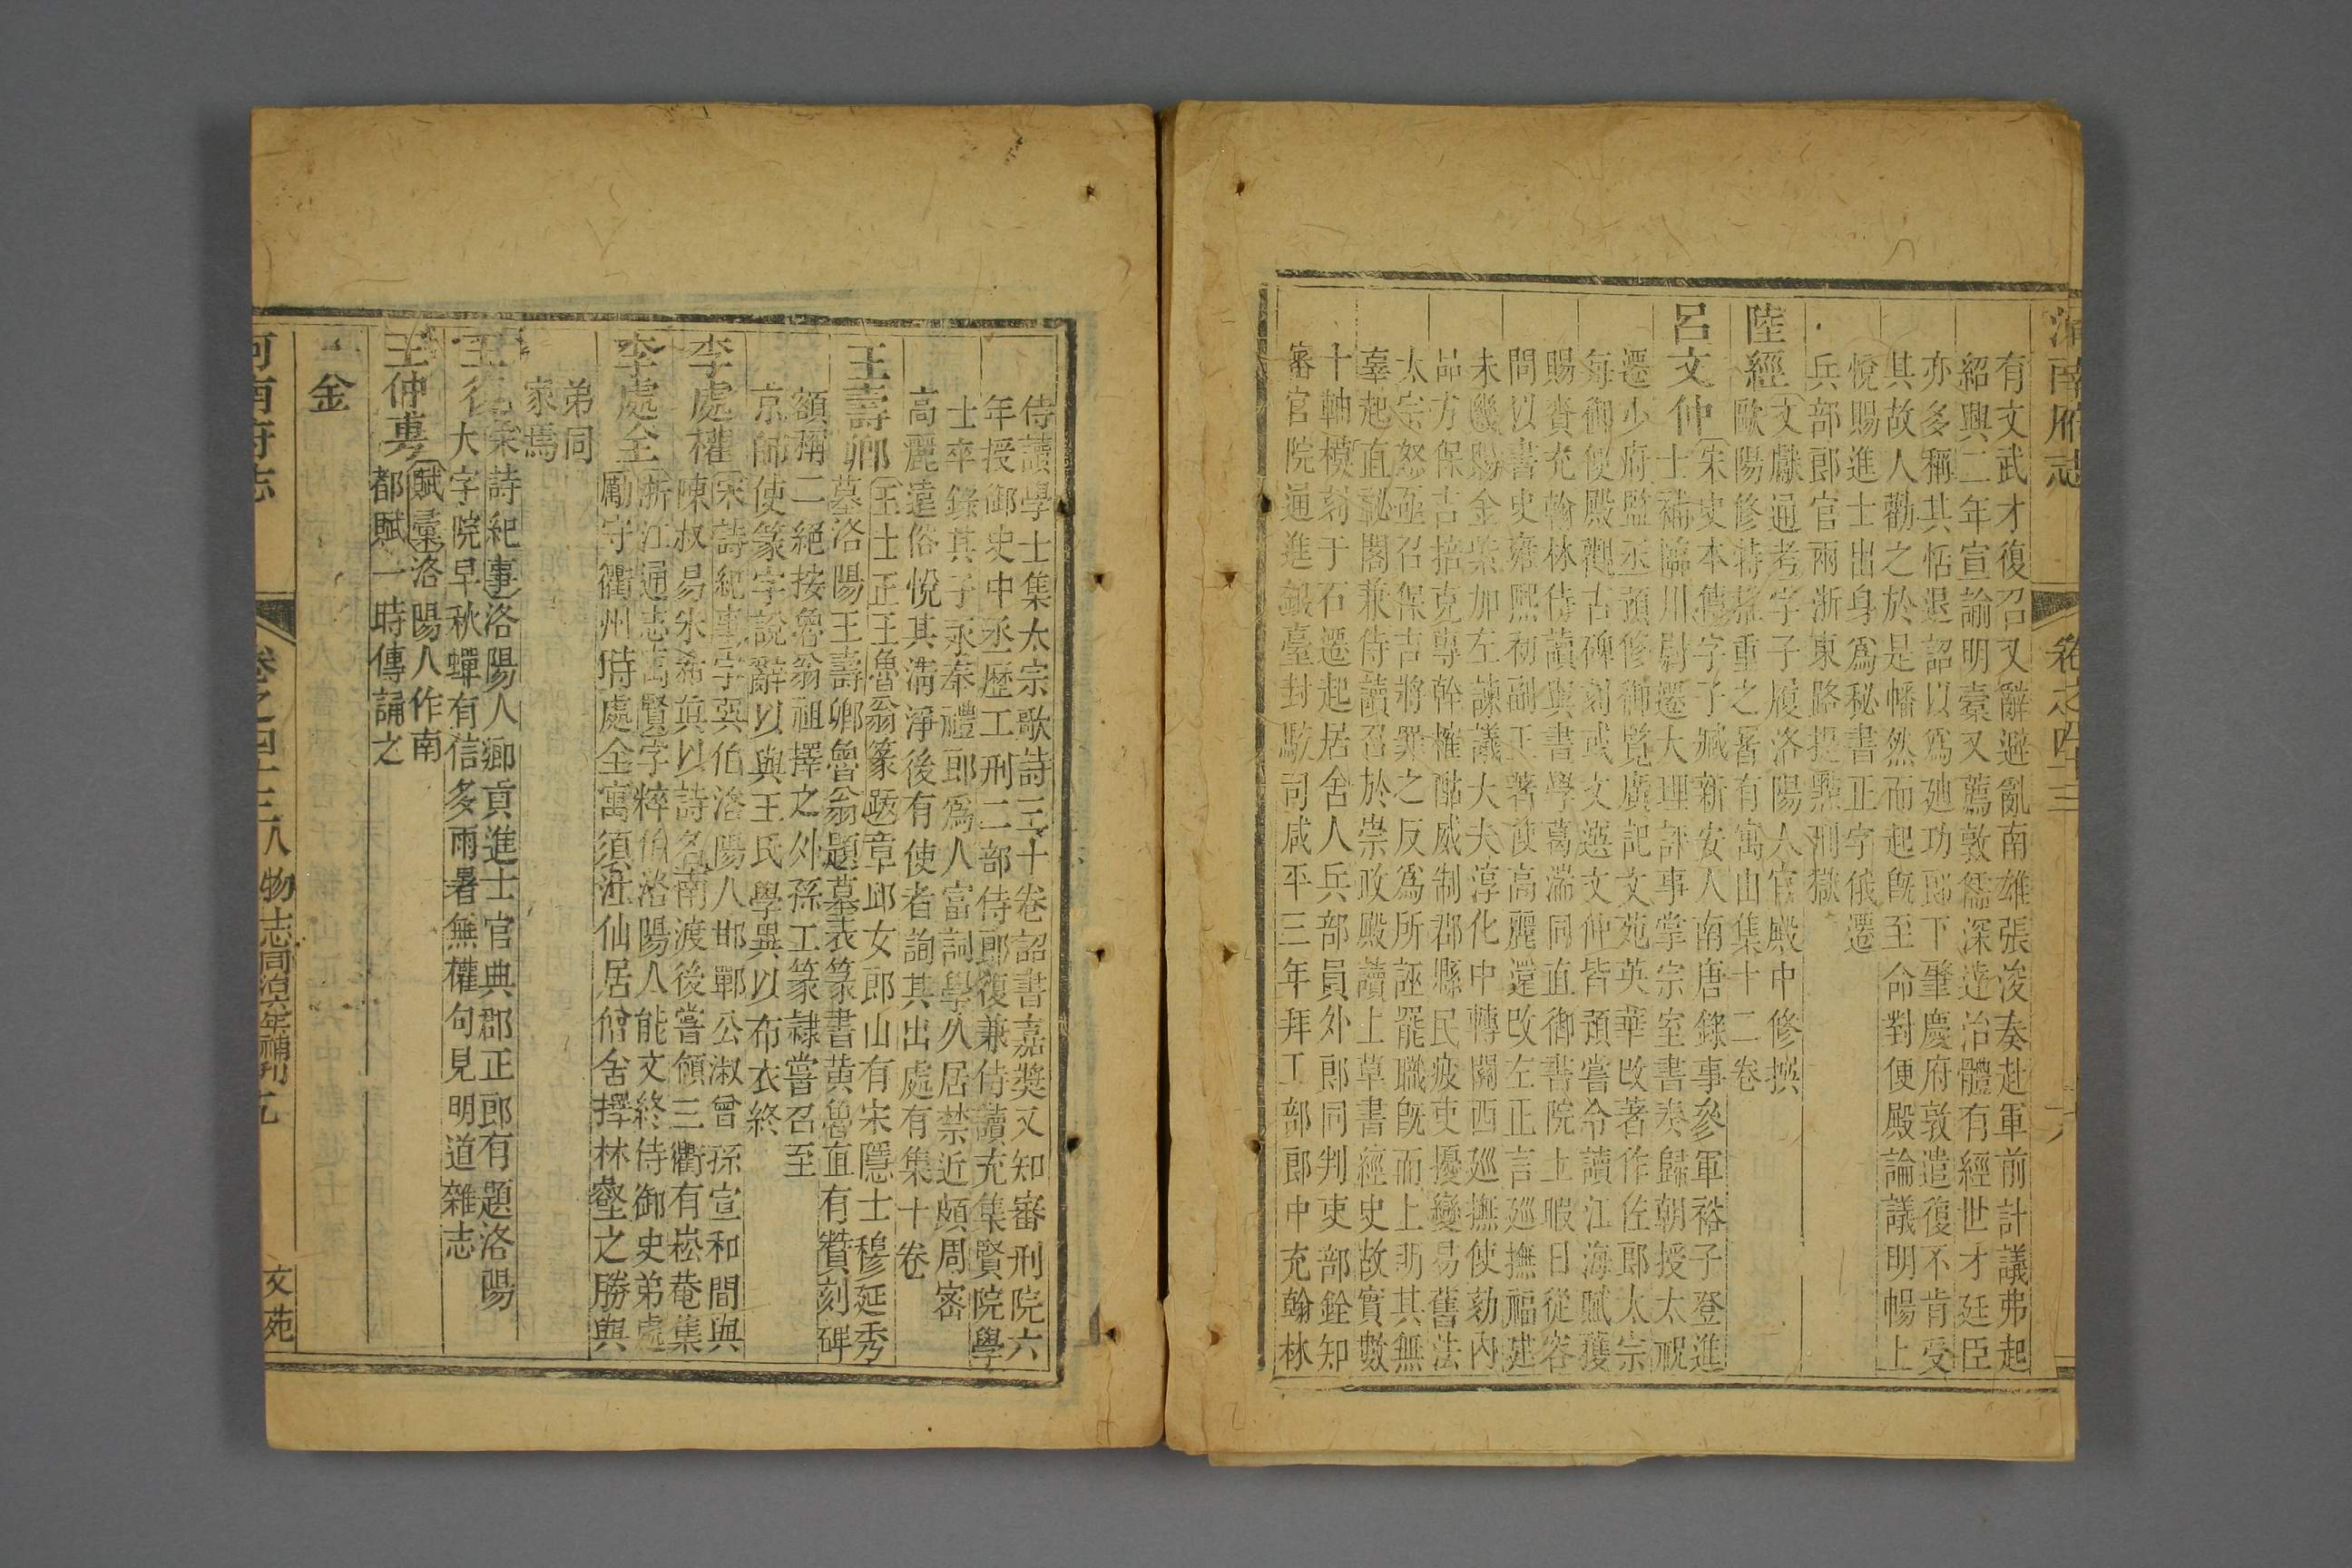 河南府志 卷之四十三 六
有文武才復召又辭避亂南雄張浚奏赴軍前計議弗起
紹興二年宣諭明橐又薦敦儒深達治體有經世才廷臣
亦多稱其恬退詔以為廸功郎下肇慶府敦遣復不肯受
其故人勸之於是幡然而起旣至命對便殿論議明暢上
悅賜進士出身為秘書正字俄遷
兵部郎官兩浙東路提點刑獄
陸經 文獻通考字子履洛陽人官殿中修撰
歐陽修特推重之著有寓山集十二卷
呂文仲 宋史本傳字子臧新安人南唐錄事參軍裕子登進
士補臨川尉遷大理評事掌宗室書奏歸朝授太祝
遷少府監丞預修御覽廣記文苑英華改著作佐郎太宗
每御便殿觀古碑刻或文選文仲皆預嘗令讀江海賦獲
賜賚充翰林侍讀與書學葛湍同直御書院上暇日從容
問以書史雍熙初副王著使高麗還改左正言廵撫福建
未幾賜金紫加左諫議大夫淳化中轉關西廵撫使劾內
品方保吉掊克專幹榷酤威制郡縣民疲吏擾變易舊法
太宗怒亟召保吉將罪之反為所誣罷職旣而上明其無
辜起直祕閣兼侍讀召於崇政殿讀上草書經史故實數
十軸模刻于石遷起居舍人兵部員外郎同判吏部銓知
審官院通進銀臺封駁司咸平三年拜工部郎中充翰林
侍讀學士集太宗歌詩三十卷詔書嘉獎又知審刑院六
年授御史中丞歷工刑二部侍郎復兼侍讀充集賢院學
士卒錄其子永奉禮郎為人富詞學久居禁近頗周密
高麗遠俗悅其淸淨後有使者詢其出處有集十卷
王壽卿 王士正王魯翁篆跋章邱女郎山有宋隱士穆延秀
墓洛陽王壽卿魯翁題墓表篆書黃魯直有贊刻碑
額稱二絕按魯翁祖擇之外孫工篆隸嘗召至
京師使篆字說辭以與王氏學異以布衣終
李處權 宋詩紀事字巽伯洛陽人邯鄲公淑曾孫宣和間與
陳叔易朱希眞以詩名南渡後嘗領三衢有崧菴集
李處全 浙江通志萬賢字粹伯洛陽人能文終侍御史弟處
勵守衢州時處全寓須江仙居僧舍擇林壑之勝與
弟同
家焉
王復 宋詩紀事洛陽人鄉貢進士官典郡正郎有題洛陽
大字院早秋蟬有信多雨暑無權句見明道雜志
王仲甫 賦彙洛陽人作南
都賦一時傳誦之
金
河南府志 卷之四十三人物志同治六年補刊 五 文苑